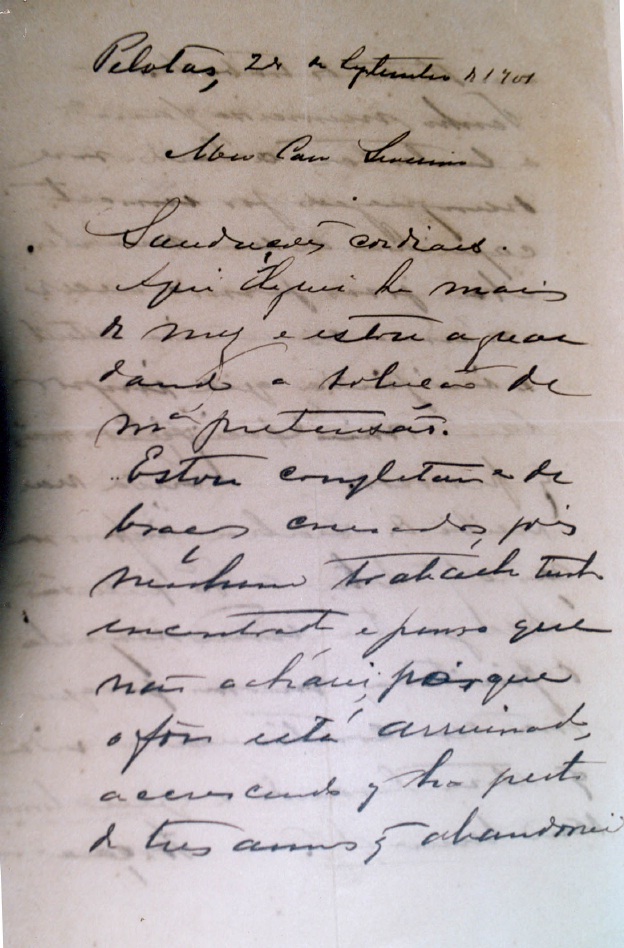 Pelotas, 22 de Septembro de 1901
Meu Caro Severino
Saudações cordiaes.
Aqui cheguei ha mais
de mez e estou aguar
dando a solução de
mª pretensão.
Estou completame de
braços cruzados, pois
nenhum trabalho tenho
encontrado e penso que
não acharei, porque
o fôro está arruinado,
accrescendo q ha perto
de tres annos q̃ abandonei